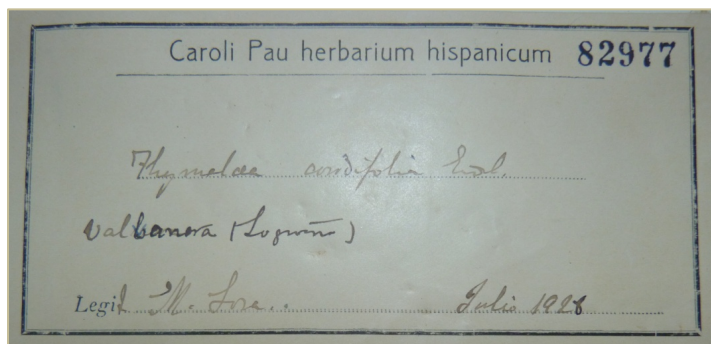 Caroli Pau herbarium hispanicum 82977
Thymelaea End.
Valbanera (Logroño)
Legit M. Losa. Julio 1928